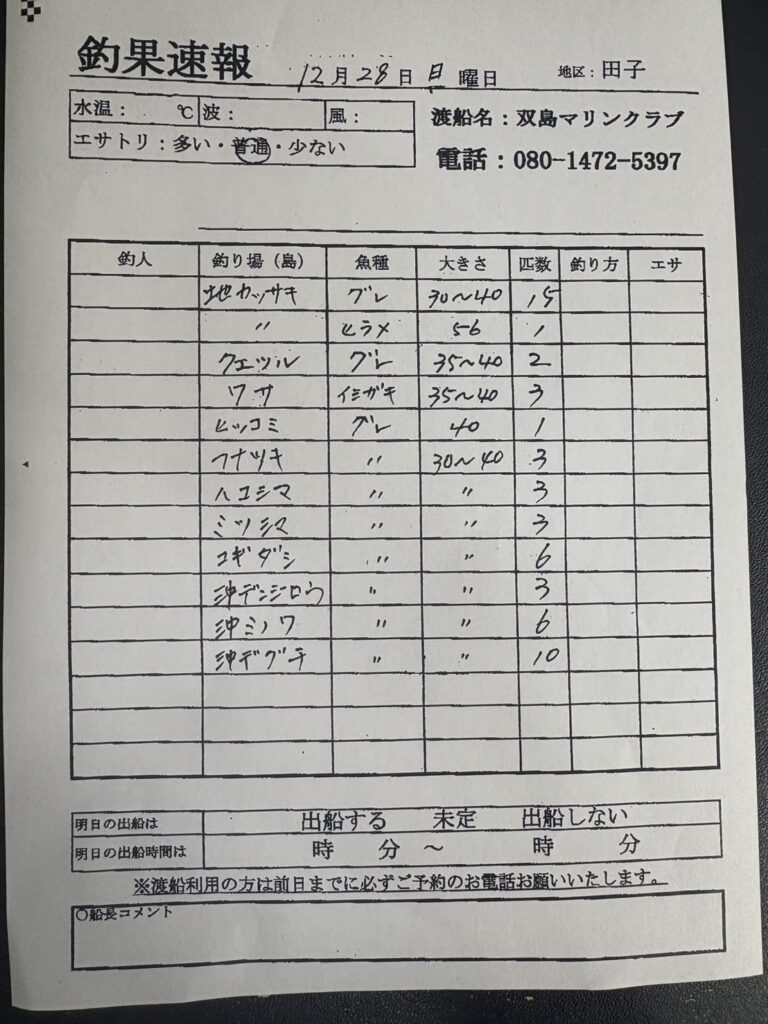 釣果速報 12月28日 日 曜日 地区：田子
水温： ℃ 波： 風：
エサトリ：多い・普通・少ない
渡船名：双島マリンクラブ
電話：080-1472-5397
釣人 釣り場（島） 魚種 大きさ 匹数 釣り方 エサ
地カッサキ グレ 30〜40 15
〃 ヒラメ 56 1
クエツル グレ 35〜40 2
ワサ イシガキ 35〜40 3
ヒッコミ グレ 40 1
フナツキ 〃 30〜40 3
ハコシマ 〃 〃 3
ミツシマ 〃 〃 3
コギダシ 〃 〃 6
沖デンジロウ 〃 〃 3
沖ミノワ 〃 〃 6
沖デグチ 〃 〃 10
明日の出船は 出船する 未定 出船しない
明日の出船時間は 時 分 〜 時 分
※渡船利用の方は前日までに必ずご予約のお電話お願いいたします。
〇船長コメント